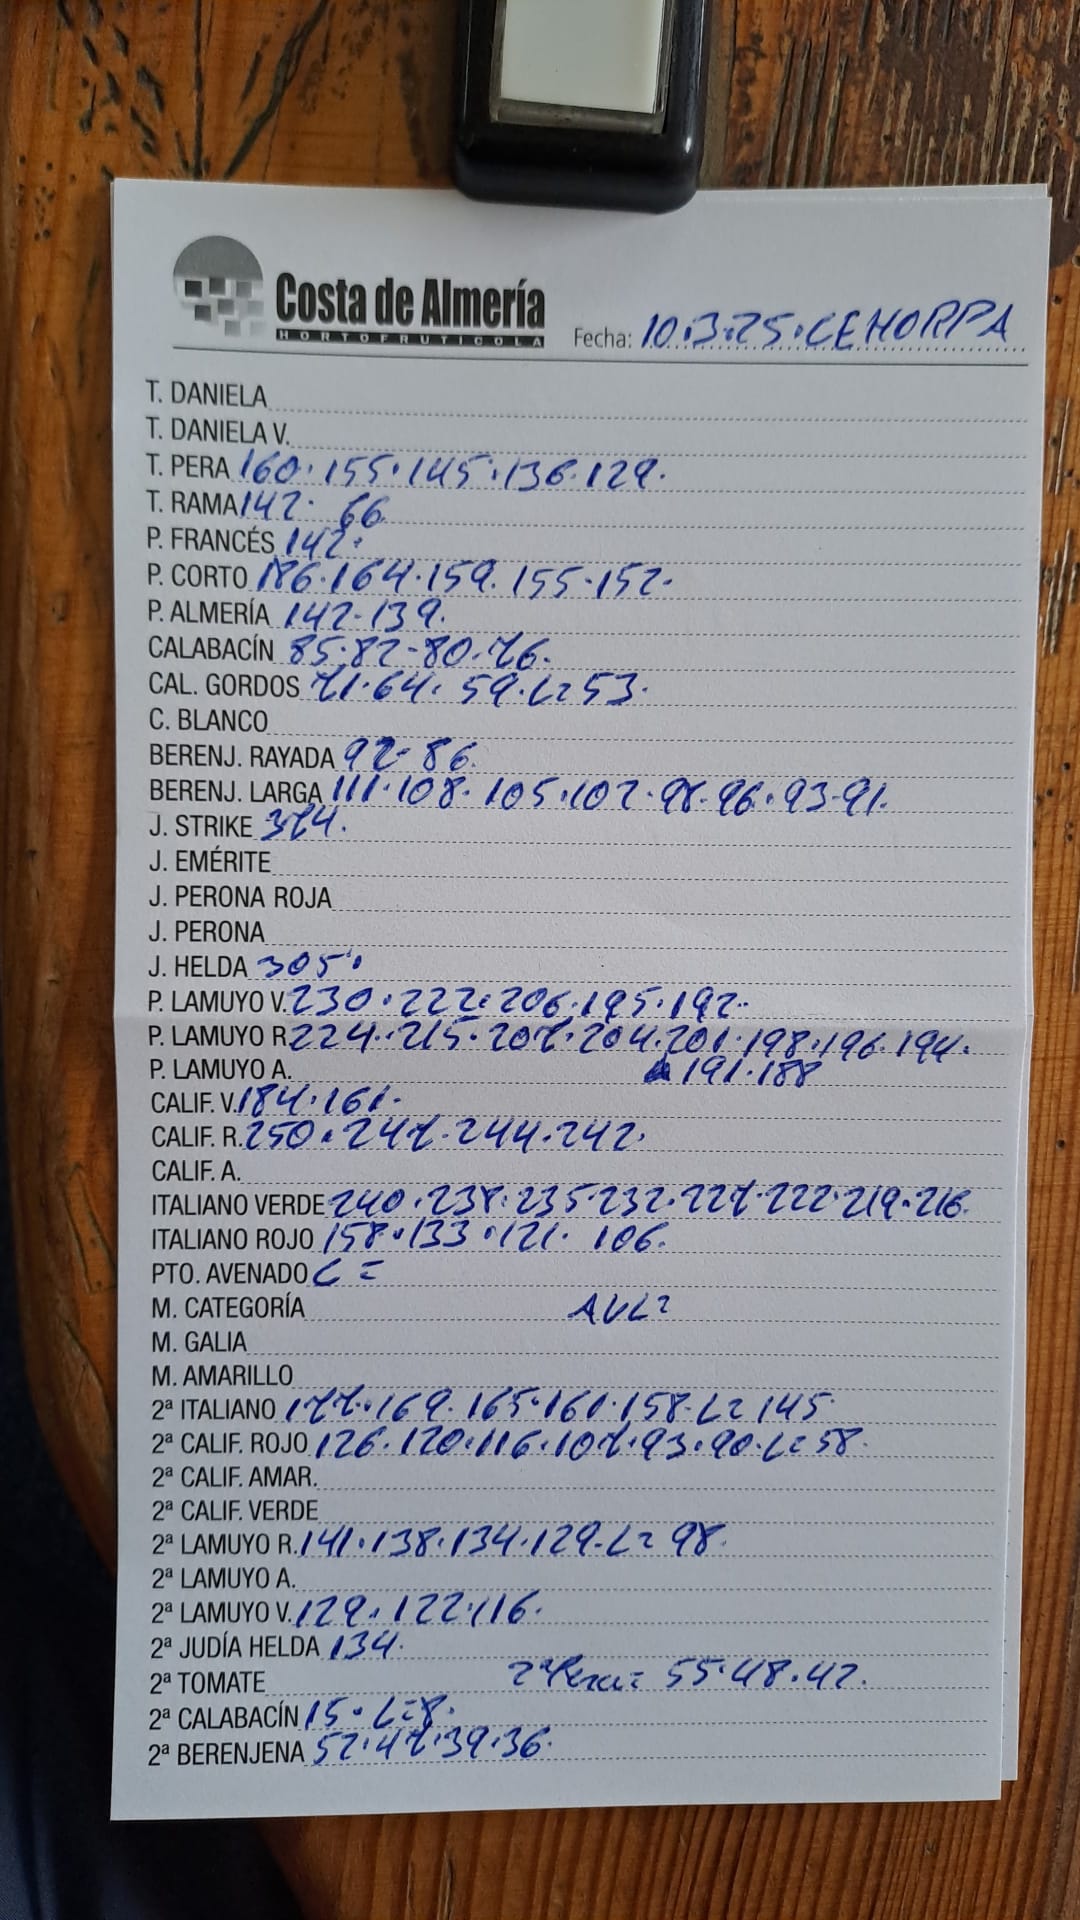 Costa de Almería
HORTOFRUTICOLA
Fecha: 10.3.25. CEHORPA
T. DANIELA
T. DANIELA V.
T. PERA 160. 155. 145. 136. 129.
T. RAMA 142. 66
P. FRANCÉS 142.
P. CORTO 186. 164. 159. 155. 152.
P. ALMERÍA 142-139.
CALABACÍN 85.82-80.76.
CAL. GORDOS 71.64. 59. L=53.
C. BLANCO
BERENJ. RAYADA 92-86.
BERENJ. LARGA 111.108. 105.102.98.96.93.91.
J. STRIKE 374.
J. EMÉRITE
J. PERONA ROJA
J. PERONA
J. HELDA 305.
P. LAMUYO V. 230.222.206.195.192.
P. LAMUYO R. 224.215.207.204.201.198.196.194.
P. LAMUYO A. 191.188
CALIF. V. 184.161.
CALIF. R. 250.247.244.242.
CALIF. A.
ITALIANO VERDE 240.238.235.232.227.222.219.216.
ITALIANO ROJO 158.133.121. 106.
PTO. AVENADO L=
M. CATEGORÍA
M. GALIA
M. AMARILLO
2ª ITALIANO 177.169.165.161.158.L=145.
2ª CALIF. ROJO 126.120.116.107.93.90.L=58.
2ª CALIF. AMAR.
2ª CALIF. VERDE
2ª LAMUYO R. 141.138.134.129.L=98.
2ª LAMUYO A.
2ª LAMUYO V. 129.122.116.
2ª JUDÍA HELDA 134.
2ª TOMATE 2ª Pera= 55.48.42.
2ª CALABACÍN 15. L=8.
2ª BERENJENA 52.47.39.36.